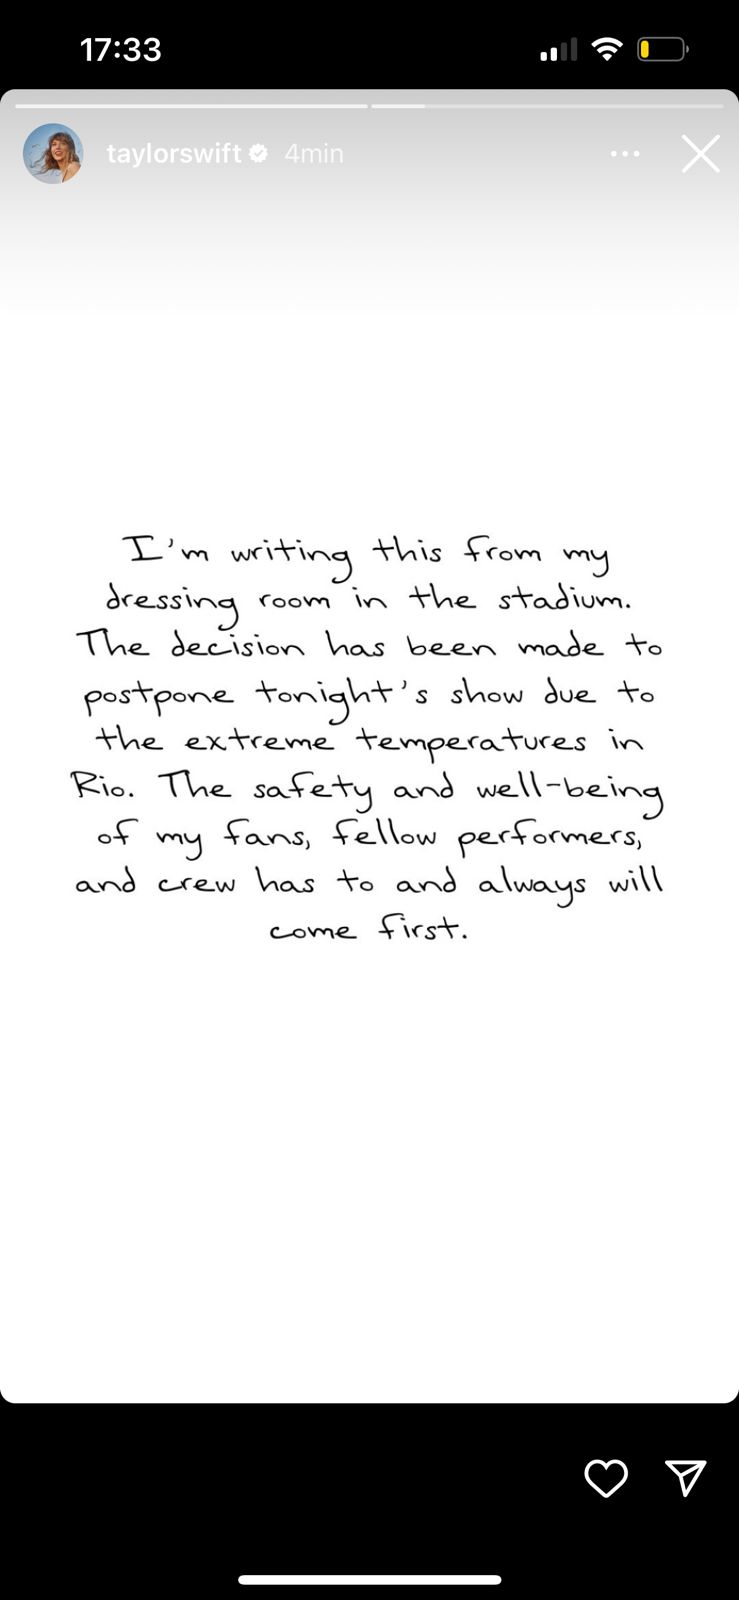 17:33
taylorswift 4min
I'm writing this from my
dressing room in the stadium.
The decision has been made to
postpone tonight's show due to
the extreme temperatures in
Rio. The safety and well-being
of my fans, fellow performers,
and crew has to and always will
come first.